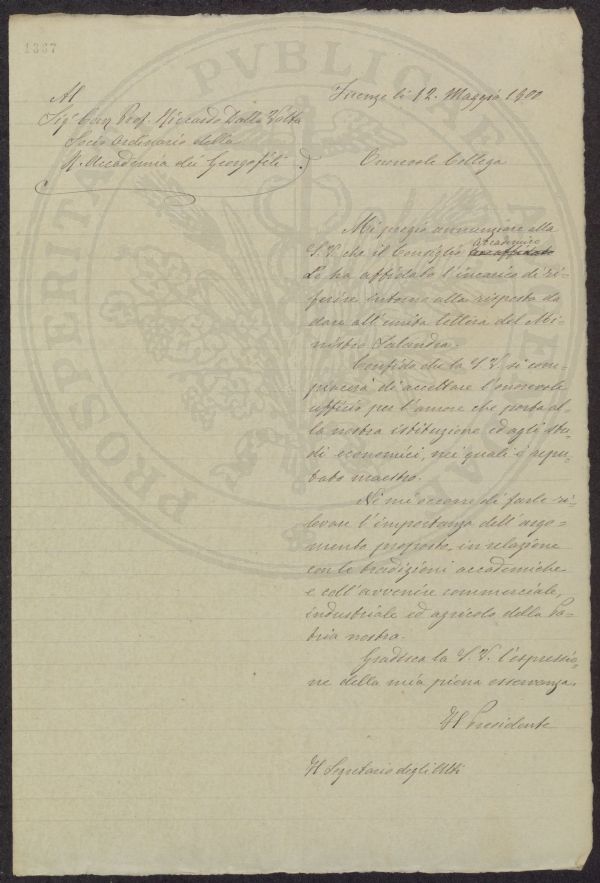 1337
Al
Sig.r Cav. Prof. Riccardo Dalla Volta
Socio Ordinario della
R. Accademia dei Georgofili.
Firenze li 12. Maggio 1900
Onorevole Collega
Mi pregio annunziare alla
S. V. che il Consiglio Accademico
Le ha affidato l'incarico di ri-
ferire intorno alla risposta da
dare all'unita lettera del Mi-
nistro Salandra.
Confido che la S. V. si com-
piacerà di accettare l'onorevole
ufficio per l'amore che porta al-
la nostra istituzione ed agli stu-
di economici, nei quali è repu-
tato maestro.
Nè mi occorre di farle ri-
levare l'importanza dell'argo-
mento proposto, in relazione
con le tradizioni accademiche
e coll'avvenire commerciale,
industriale ed agricolo della Pa-
tria nostra.
Gradisca la S. V. l'espressio-
ne della mia piena osservanza.
Il Presidente
Il Segretario degli Atti
PROSPERITATI PVBLICAE AVGENDAE